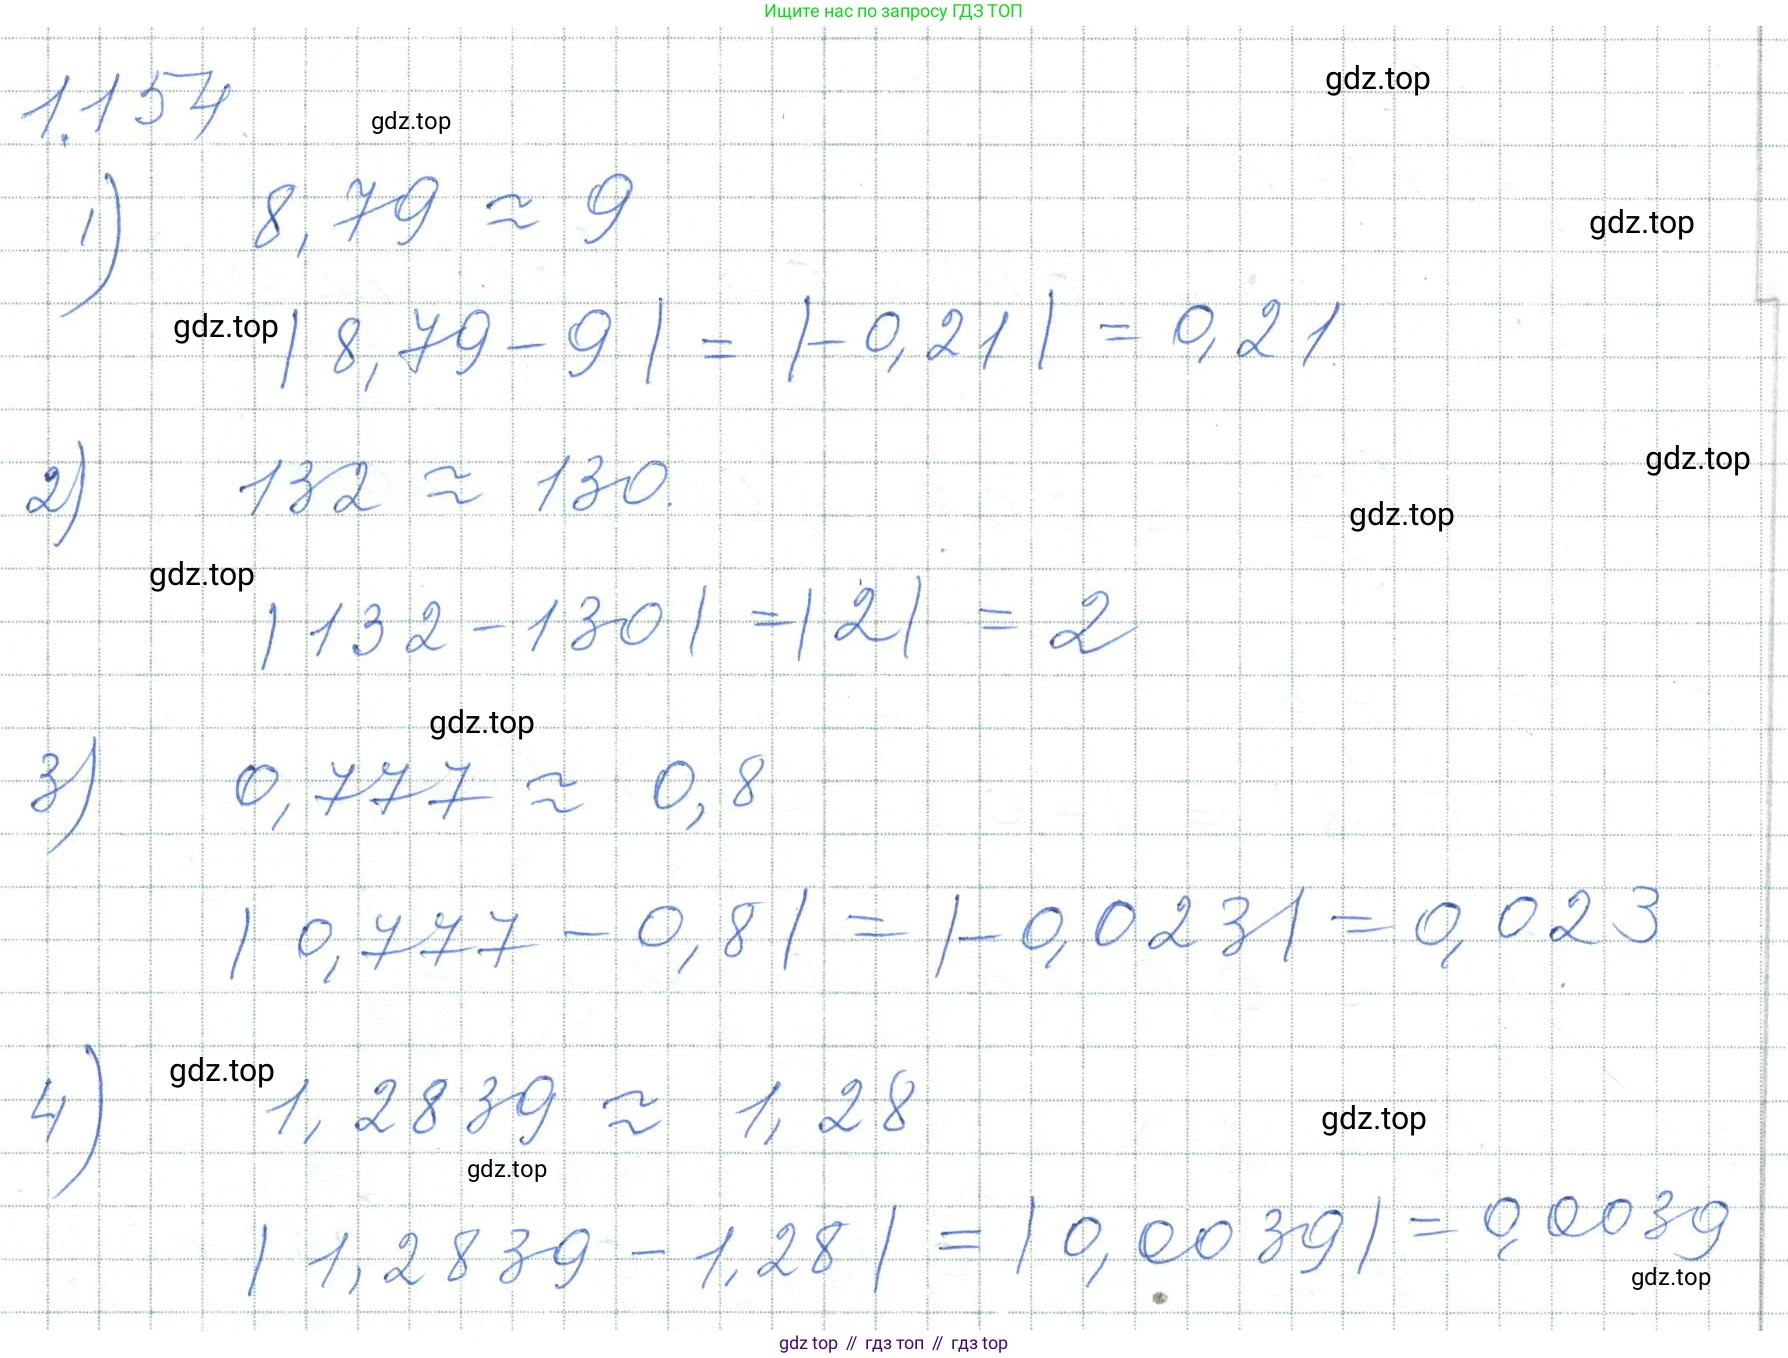 Ищите нас по запросу ГДЗ ТОП
gdz.top
1.154
gdz.top
1) 8,79 ≈ 9
gdz.top
gdz.top
|8,79 - 9| = |-0,21| = 0,21
gdz.top
2) 132 ≈ 130.
gdz.top
gdz.top
|132 - 130| = |2| = 2
gdz.top
3) 0,777 ≈ 0,8
|0,777 - 0,8| = |-0,023| = 0,023
gdz.top
4) 1,2839 ≈ 1,28
gdz.top
gdz.top
|1,2839 - 1,28| = |0,0039| = 0,0039
gdz.top
gdz top // гдз топ // gdz top